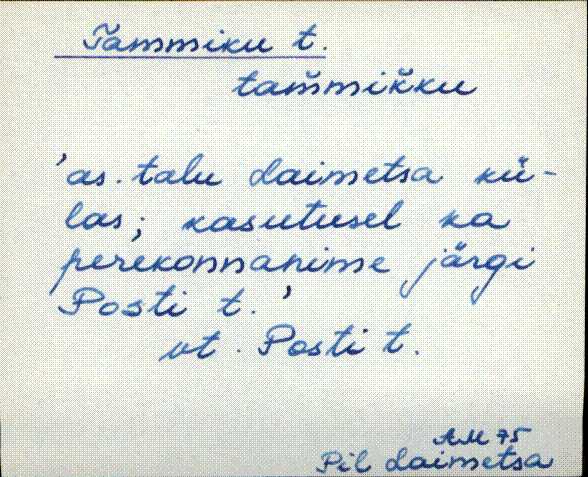 Tammiku t.
tam̆mik̆ku
'as. talu Laimetsa kü-
las; kasutusel ka
perekonnanime järgi
Posti t.'
vt. Posti t.
AM 75
Pil Laimetsa